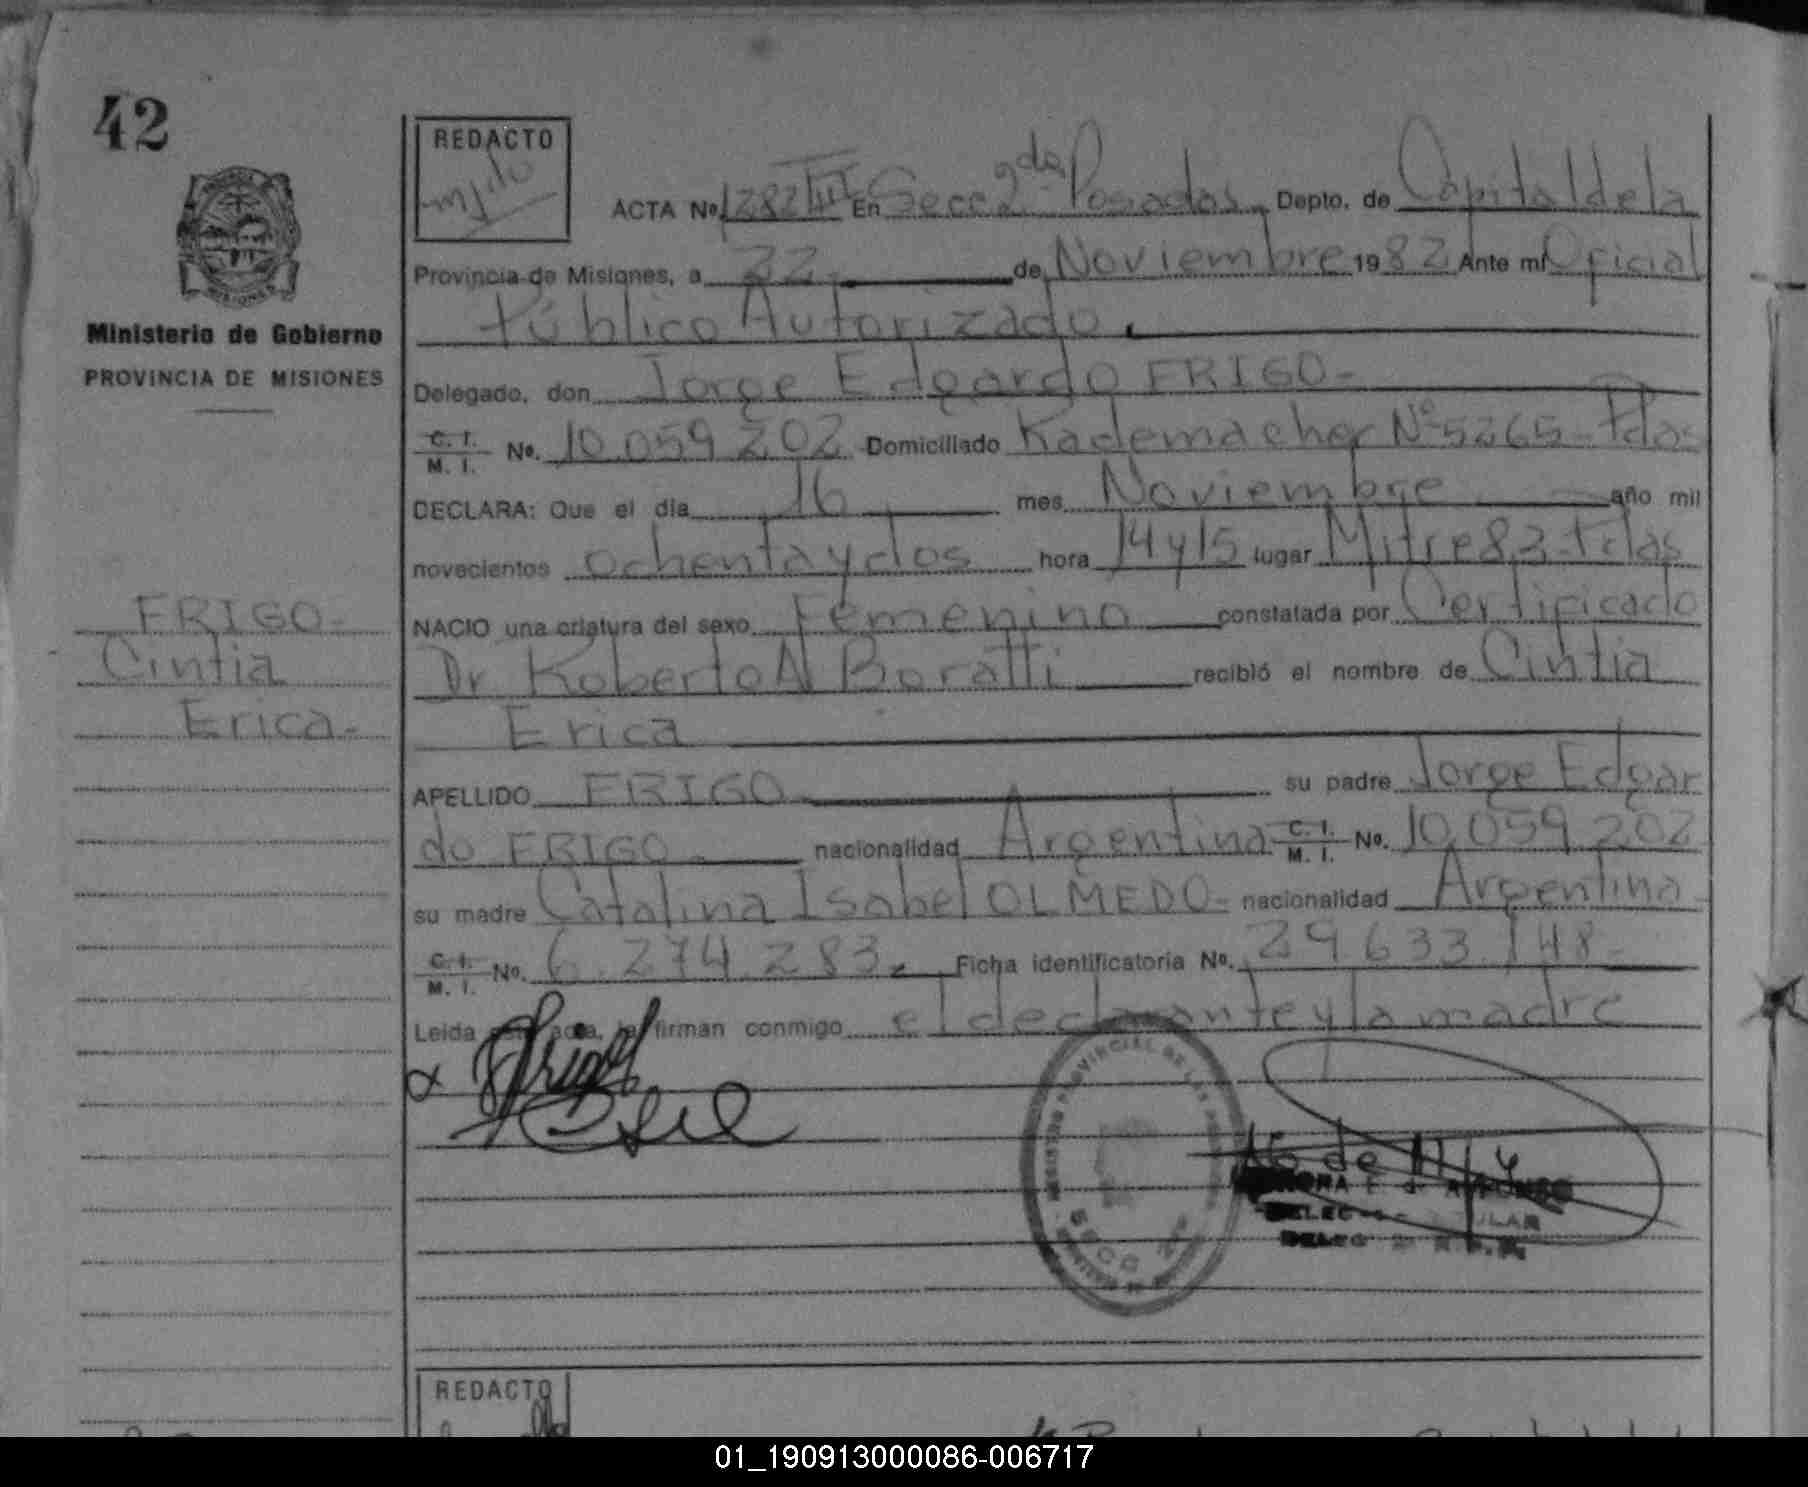 42
REDACTO
ACTA No. 1282 III En Secc 2da Posadas Depto. de Capital de la
Provincia de Misiones, a 22 de Noviembre 1982 Ante mi Oficial
Público Autorizado
Ministerio de Gobierno
PROVINCIA DE MISIONES
Delegado, don Jorge Edgardo FRIGO-
C. I.
M. I. No. 10.059.202 Domiciliado Rademacher Nº 5265- Pdas
DECLARA: Que el día 16 mes Noviembre año mil
novecientos ochenta y dos hora 14 y 15 lugar Mitre 83- Pdas
FRIGO-
Cintia
Erica-
NACIO una criatura del sexo Femenino constatada por Certificado
Dr Roberto A Boratti recibió el nombre de Cintia
Erica
APELLIDO FRIGO su padre Jorge Edgar
do FRIGO- nacionalidad Argentina C. I.
M. I. No. 10.059.202
su madre Catalina Isabel OLMEDO- nacionalidad Argentina-
C. I.
M. I. No. 6.274.283- Ficha identificatoria No. 29.633.148-
Leida acta, la firman conmigo el declarante y la madre
REGISTRO PROVINCIAL DE LAS
SECC
REDACTO
01_190913000086-006717